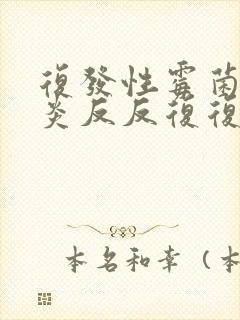 復發性霉菌
炎反反復復
本名和幸（本